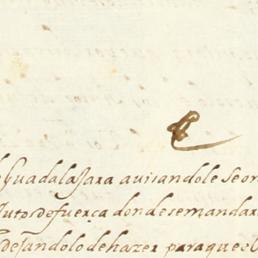 Guadalajara auisandole se or
autos de fuerça donde se mandare
dejandolo de hazer para que el